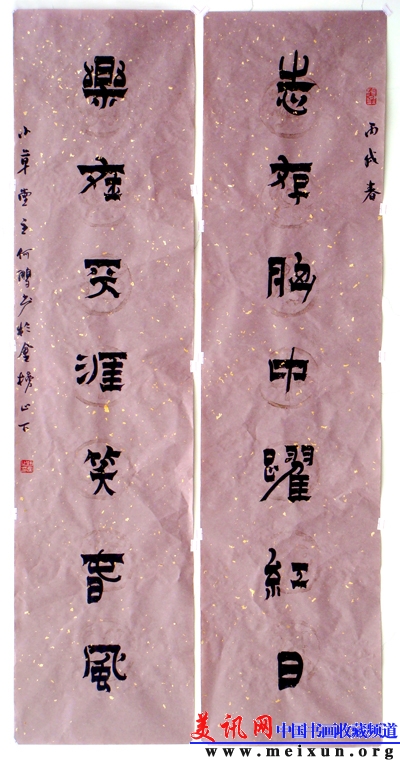 丙戌春
志存胸中躍紅日
樂在天涯笑春風
小草堂主何書於金榜山下
美讯网中国书画收藏频道
www.meixun.org